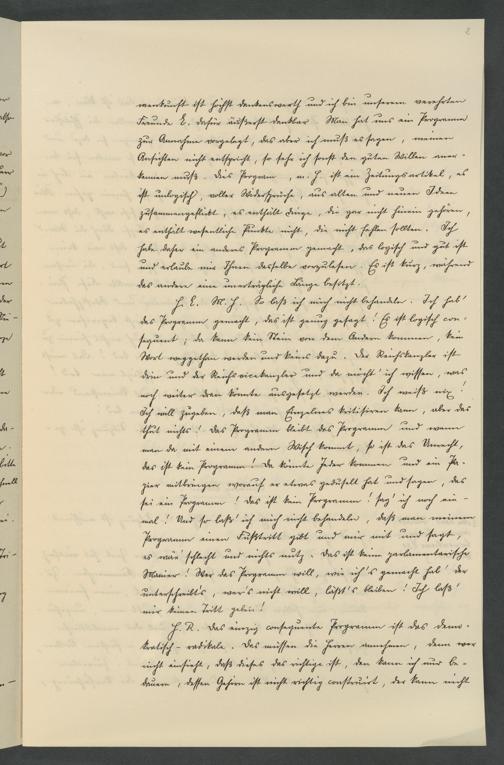 2
menkunft ist höchst dankenswerth und ich bin unserem verehrten
Freunde L. dafür äußerst dankbar. Man hat uns ein Programm
zur Annahme vorgelegt, das aber ich muß es sagen, meinen
Ansichten nicht entspricht, so sehr ich sonst den guten Willen aner-
kennen muß. Dies Programm, m. H. ist ein Zeitungsartikel, es
ist unlogisch, voller Widersprüche, aus alten und neuen Ideen
zusammengeflickt, es enthält Dinge, die gar nicht hinein gehören,
es enthält wesentliche Punkte nicht, die nicht fehlen sollten. Ich
habe daher ein anderes Programm gemacht, das logisch und gut ist
und erlaube mir Ihnen dasselbe vorzulesen. Es ist kurz, während
das andere eine unerträgliche Länge besitzt.
H. L. M. H. So laß ich mich nicht behandeln. Ich hab'
das Programm gemacht, das ist genug gesagt! Es ist logisch con-
sequent; da kann kein Stein von dem Andern kommen, kein
Wort weggethan werden und keins dazu. Der Reichskanzler ist
drin und der Reichsvicekanzler und da möcht' ich wissen, was
noch wider den könnte ausgesetzt werden. Ich weiß nix!
Ich will zugeben, daß man Einzelnes kritisiren kann, aber das
thut nichts! Das Programm bleibt das Programm und wenn
man da mit einem andern Wisch kommt, so ist das Unrecht,
das ist kein Programm! Da könnte Jeder kommen und ein Pa-
pier mitbringen worauf er etwas geduselt hat und sagen, das
sei ein Programm! Das ist kein Programm! sag' ich noch ein-
mal! Und so laß' ich mich nicht behandeln, daß man meinem
Programm einen Fußtritt gibt und mir mit und sagt,
es wär' schlecht und nichts nutz. Das ist keine parlamentarische
Manier! Wer das Programm will, wie ich's gemacht hab' der
unterschreibt's, wer's nicht will, läßt's bleiben! Ich laß'
mir keinen Tritt geben!
H. R. Das einzig consequente Programm ist das demo-
kratisch-radikale. Das müssen die Herren annehmen, denn wer
nicht einsieht, daß dieses das richtige ist, den kann ich nur be-
dauern, dessen Gehirn ist nicht richtig construirt, der kann nicht